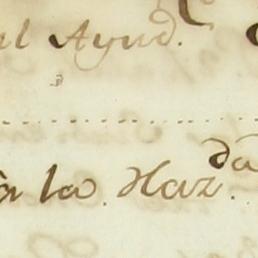 al Ayud.
à la Haz.da